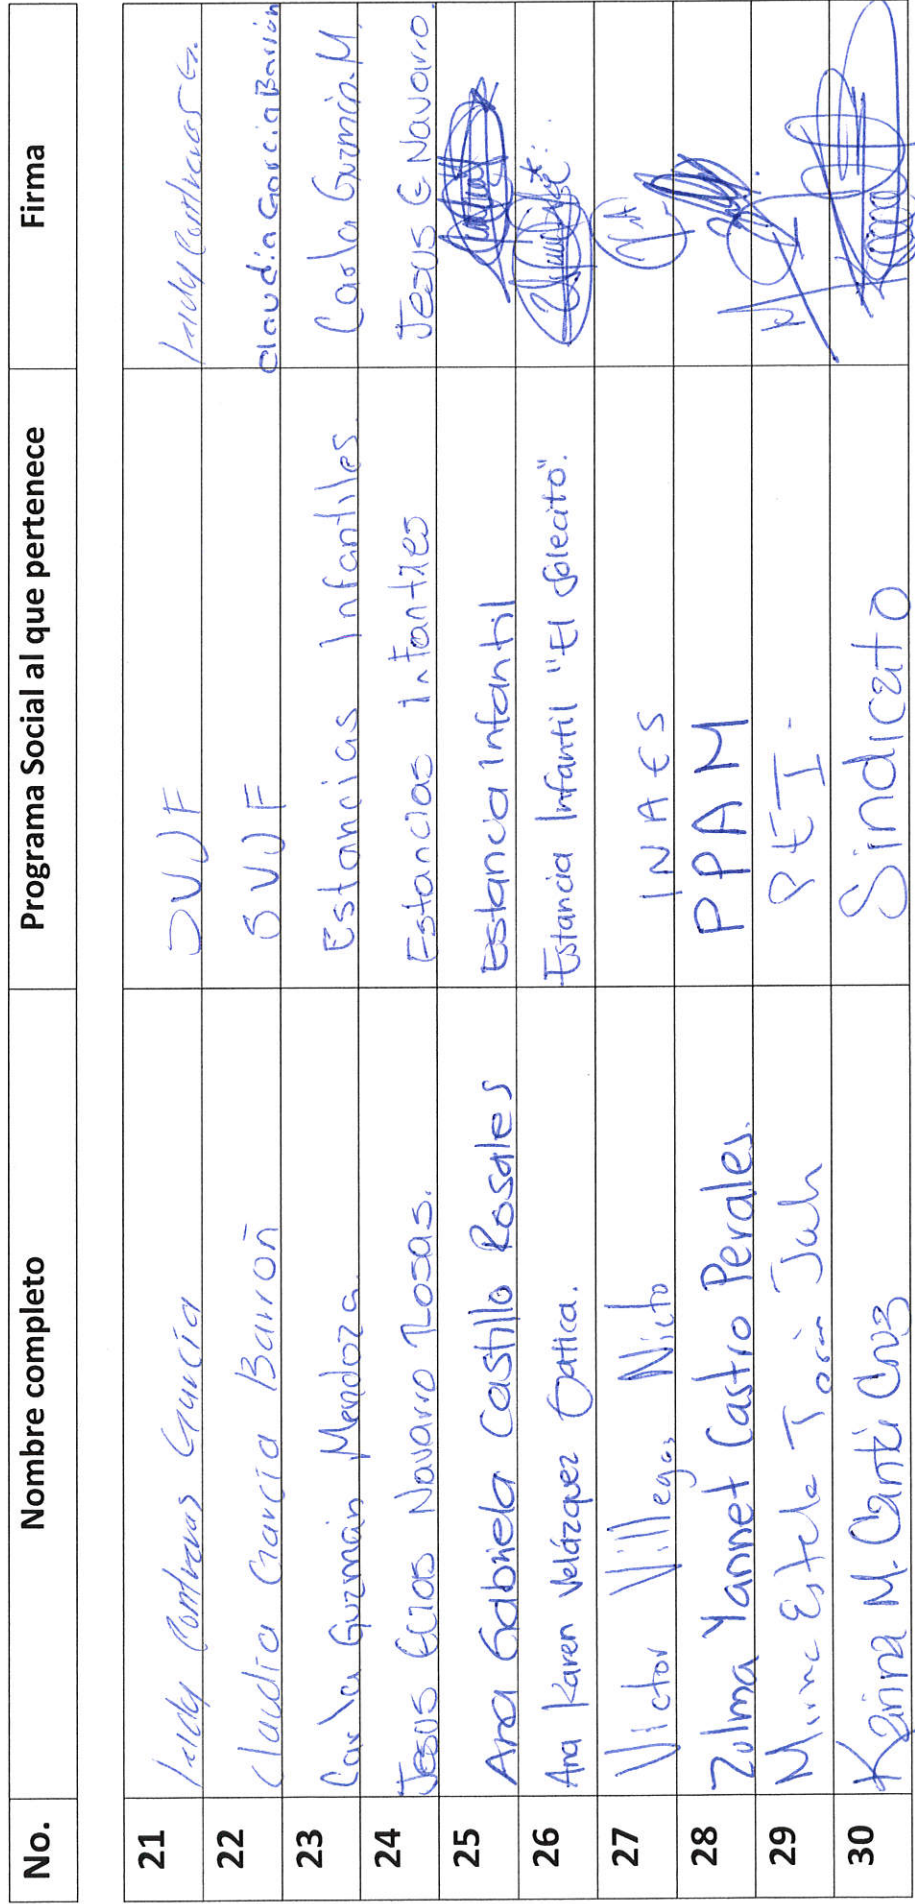 No. Nombre completo Programa Social al que pertenece Firma
21 Contreras García JVJF Contreras G.
22 Claudia García Barrón SVJF Claudia García Barrón
23 Carla Guzmán Mendoza Estancias Infantiles Carla Guzmán. M.
24 Jesus Elias Navarro Rosas. Estancias Infantiles Jesus E Navarro.
25 Ana Gabriela Castillo Rosales Estancia Infantil
26 Ana Karen Velázquez Gatica. Estancia Infantil "El Solecito".
27 Victor Villegas Nieto INAES
28 Zulma Yannet Castro Perales. PPAM
29 Estela PETI.
30 Karina M. Cantú Cruz Sindicato